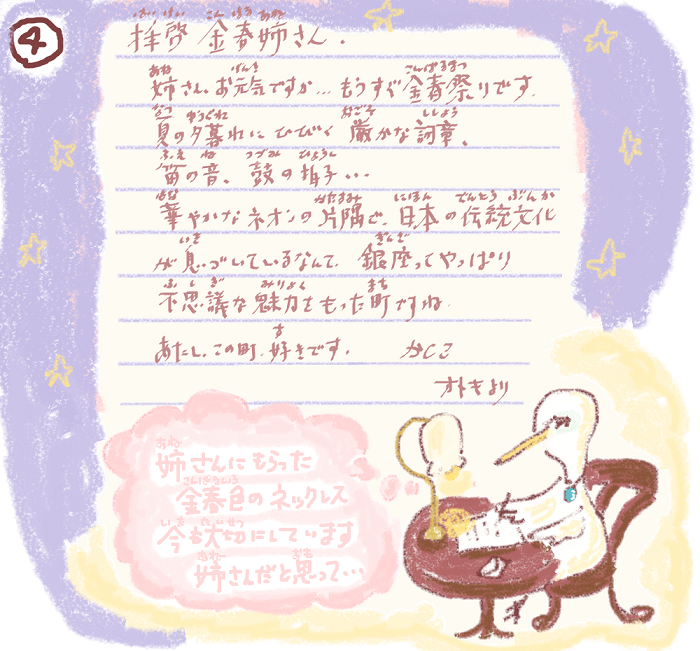 ④
拝啓 金春姉さん.
姉さん、お元気ですか… もうすぐ金春祭りです.
夏の夕暮れに ひびく 厳かな詞章、
笛の音、鼓の拍子…
華やかなネオンの片隅で、日本の伝統文化
が息づいているなんて、銀座ってやっぱり
不思議な魅力をもった町ですね.
あたし、この町、好きです. かしこ
オトキより
姉さんにもらった
金春色のネックレス
今も大切にしています
姉さんだと思って…